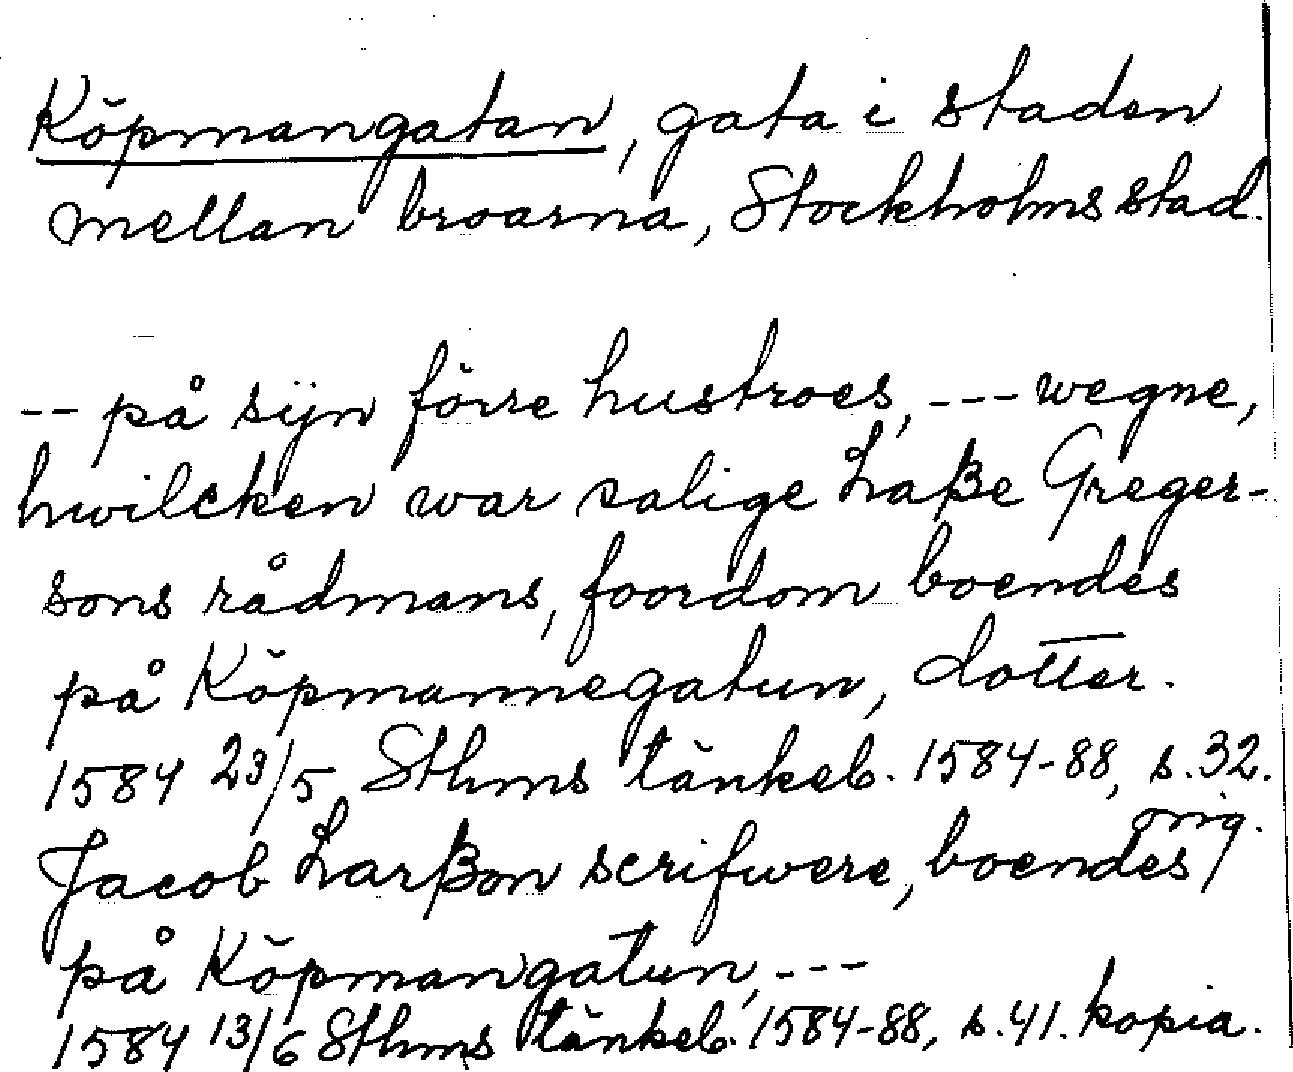 Köpmangatan, gata i staden
mellan broarna, Stockholms stad.
-- på sijn förre hustroes, --- wegne,
hwilcken war salige Laße Greger-
sons rådmans, foordom boendes
på Köpmannegatun, dotter.
1584 23/5 Sthms tänkeb. 1584-88, s. 32.
orig.
Jacob Larßon scrifwere, boendes
på Köpmangatun, ---
1584 13/6 Sthms tänkeb. 1584-88, s. 41. kopia.